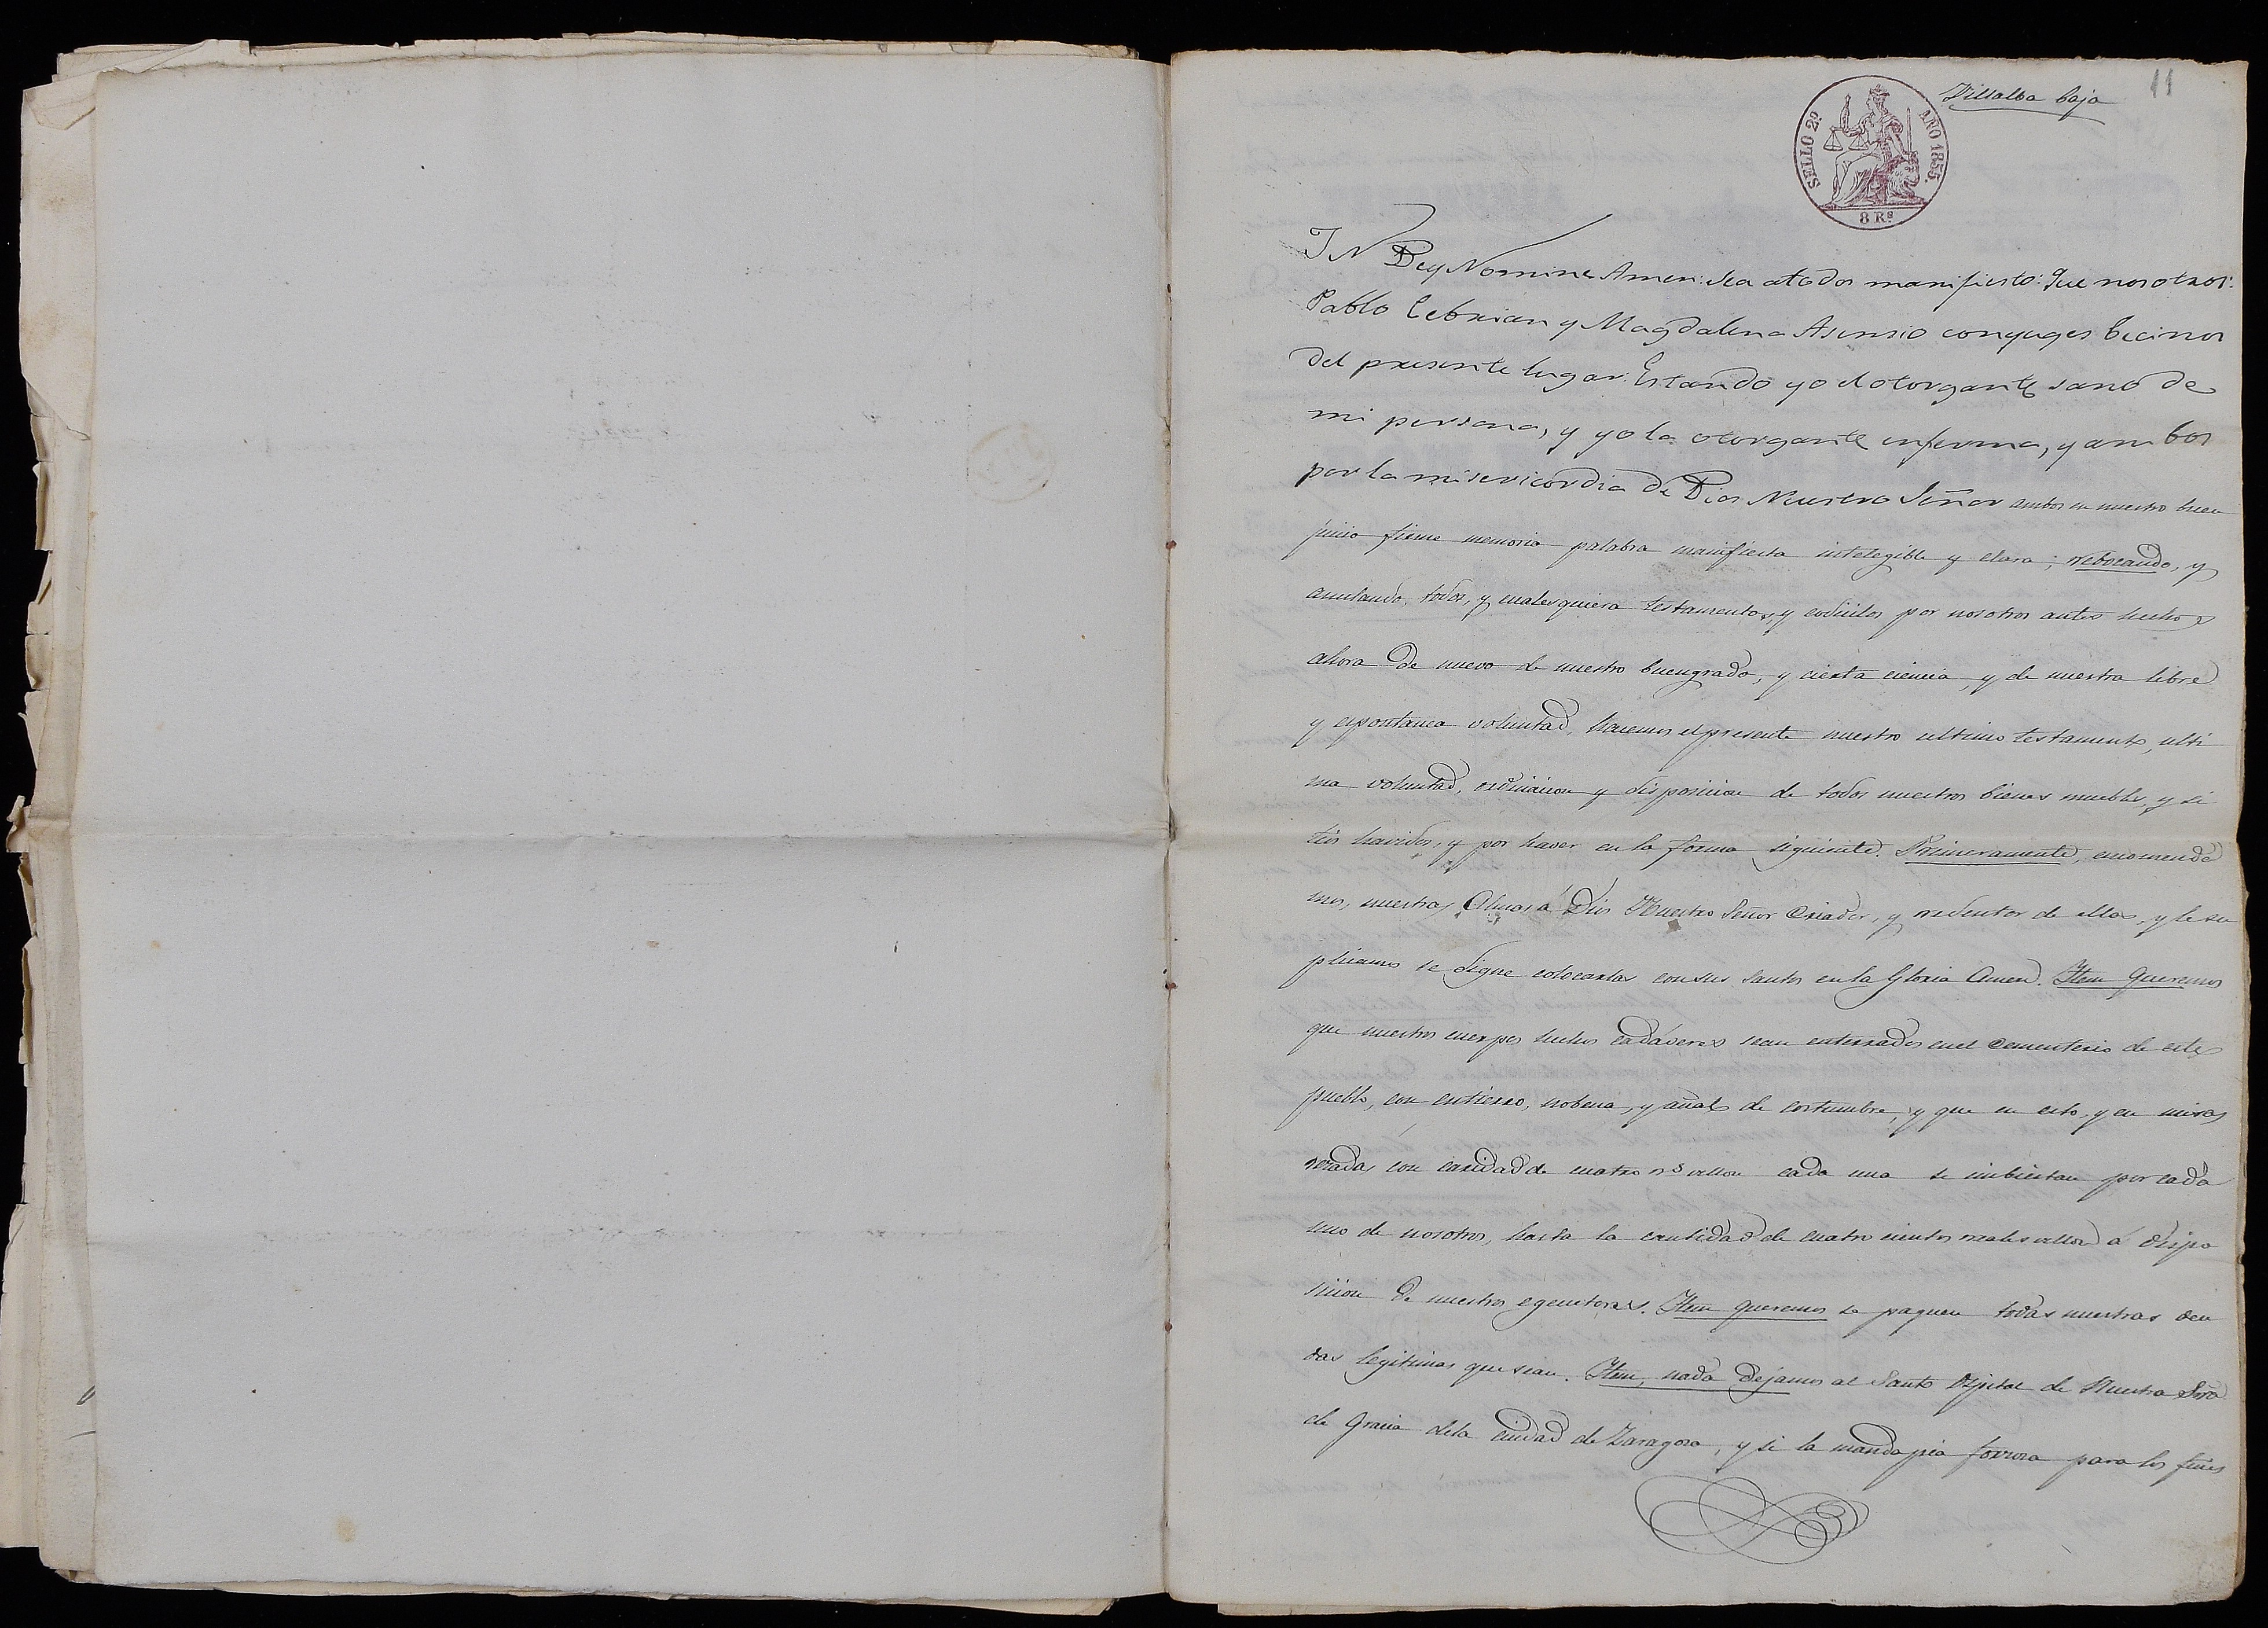 11
Villalba baja
SELLO 2º AÑO 1855.
8 Rs
IN Dey Nomine Amen: Sea atodos manifiesto: Que nosotros:
Pablo Cebrian y Magdalena Asensio conyuges becinos
del presente lugar: Estando yo el otorgante sano de
mi persona, y yo la otorgante enferma, y ambos
por la misericordia de Dios Nuestro Señor ambos en nuestro buen
juicio firme memoria palabra manifiesta intelegible y clara; rebocando, y
anulando, todos, y qualesquiera testamentos, y codicilos por nosotros antes hechos
ahora de nuevo de nuestro buengrado, y cierta ciencia y de nuestra libre
y espontanea voluntad, hacemos elpresente nuestro ultimo testamento, ulti
ma voluntad, ordinacion y disposicion de todos nuestros bienes muebles, y si
tios havidos, y por haver en la forma siguiente. Primeramente, encomenda
mos, nuestras Almas á Dios Nuestro Señor Criador, y redentor de ellas, y le su
plicamos se digne colocarlas consus Santos en la Gloria Amen. Item queremos
que nuestros cuerpos hechos cadáveres sean enterrados enel Cementerio de este
pueblo, con entierro, nobena, y añal de costumbre, y que en esto, y en misas
rezadas con caridad de cuatro rs vellon cada una se imbiertan por cada
uno de nosotros, hasta la cantidad de cuatro cientos reales vellon á dispo
sicion de nuestros egecutores. Item queremos se paguen todas nuestras deu
das legitimas que sean. Item, nada dejamos al Santo Ospital de Nuestra Sra
de Gracia dela ciudad de Zaragoza, y si la manda pia forzosa para los fines